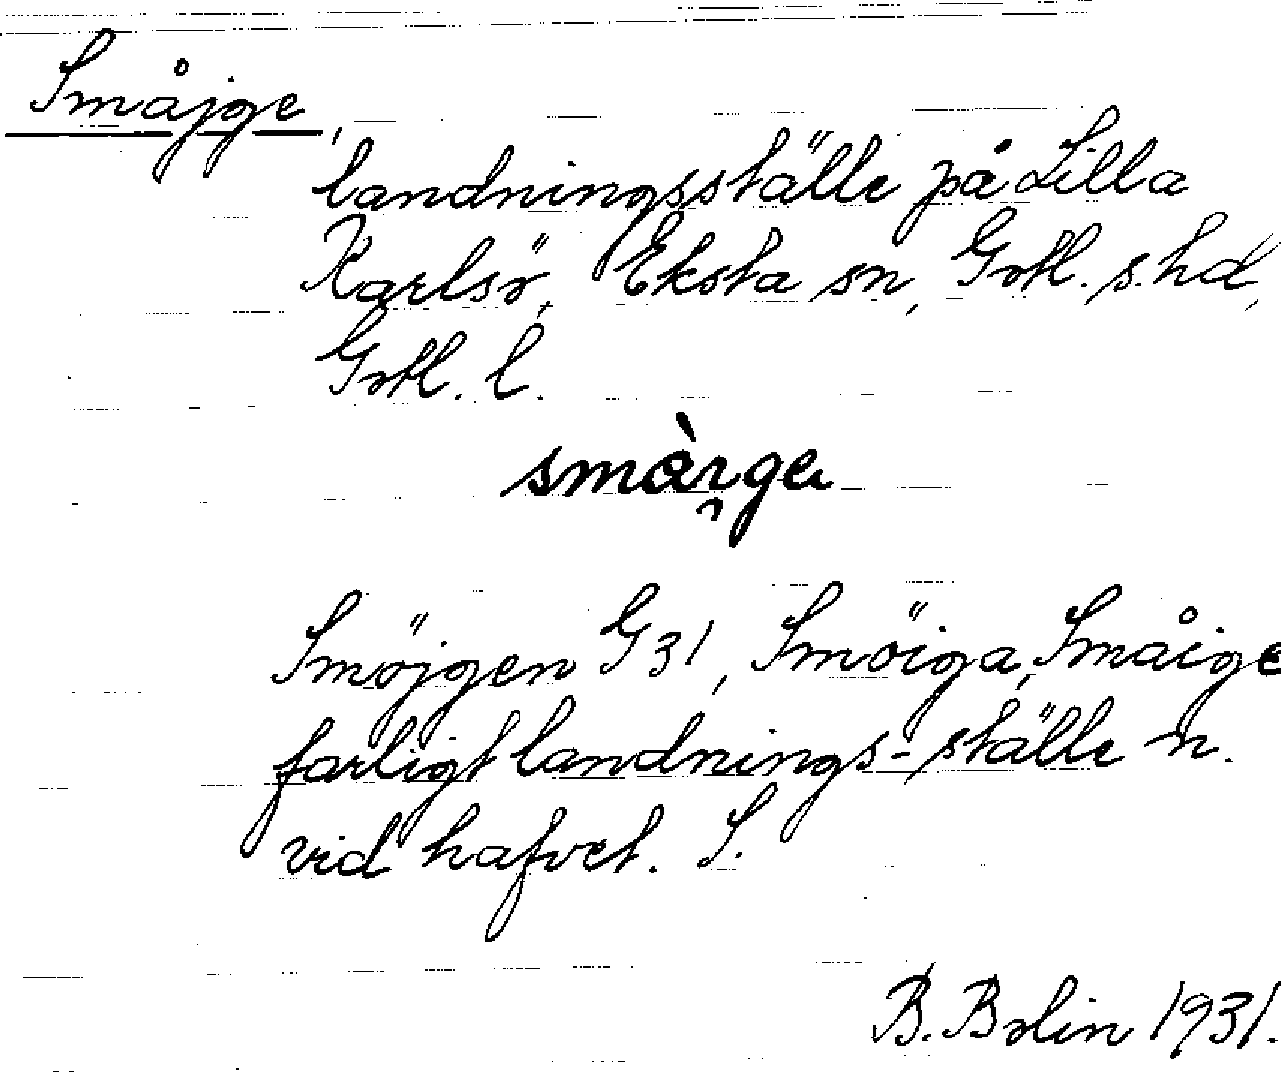 Småjge,
landningsställe på Lilla
Karlsö, Eksta sn, Gotl. s. hd,
Gotl. l.
Smöjgen G 31, Smöiga, Småige
farligt landnings-ställe n.
vid hafvet. S.
B. Bolin 1931.